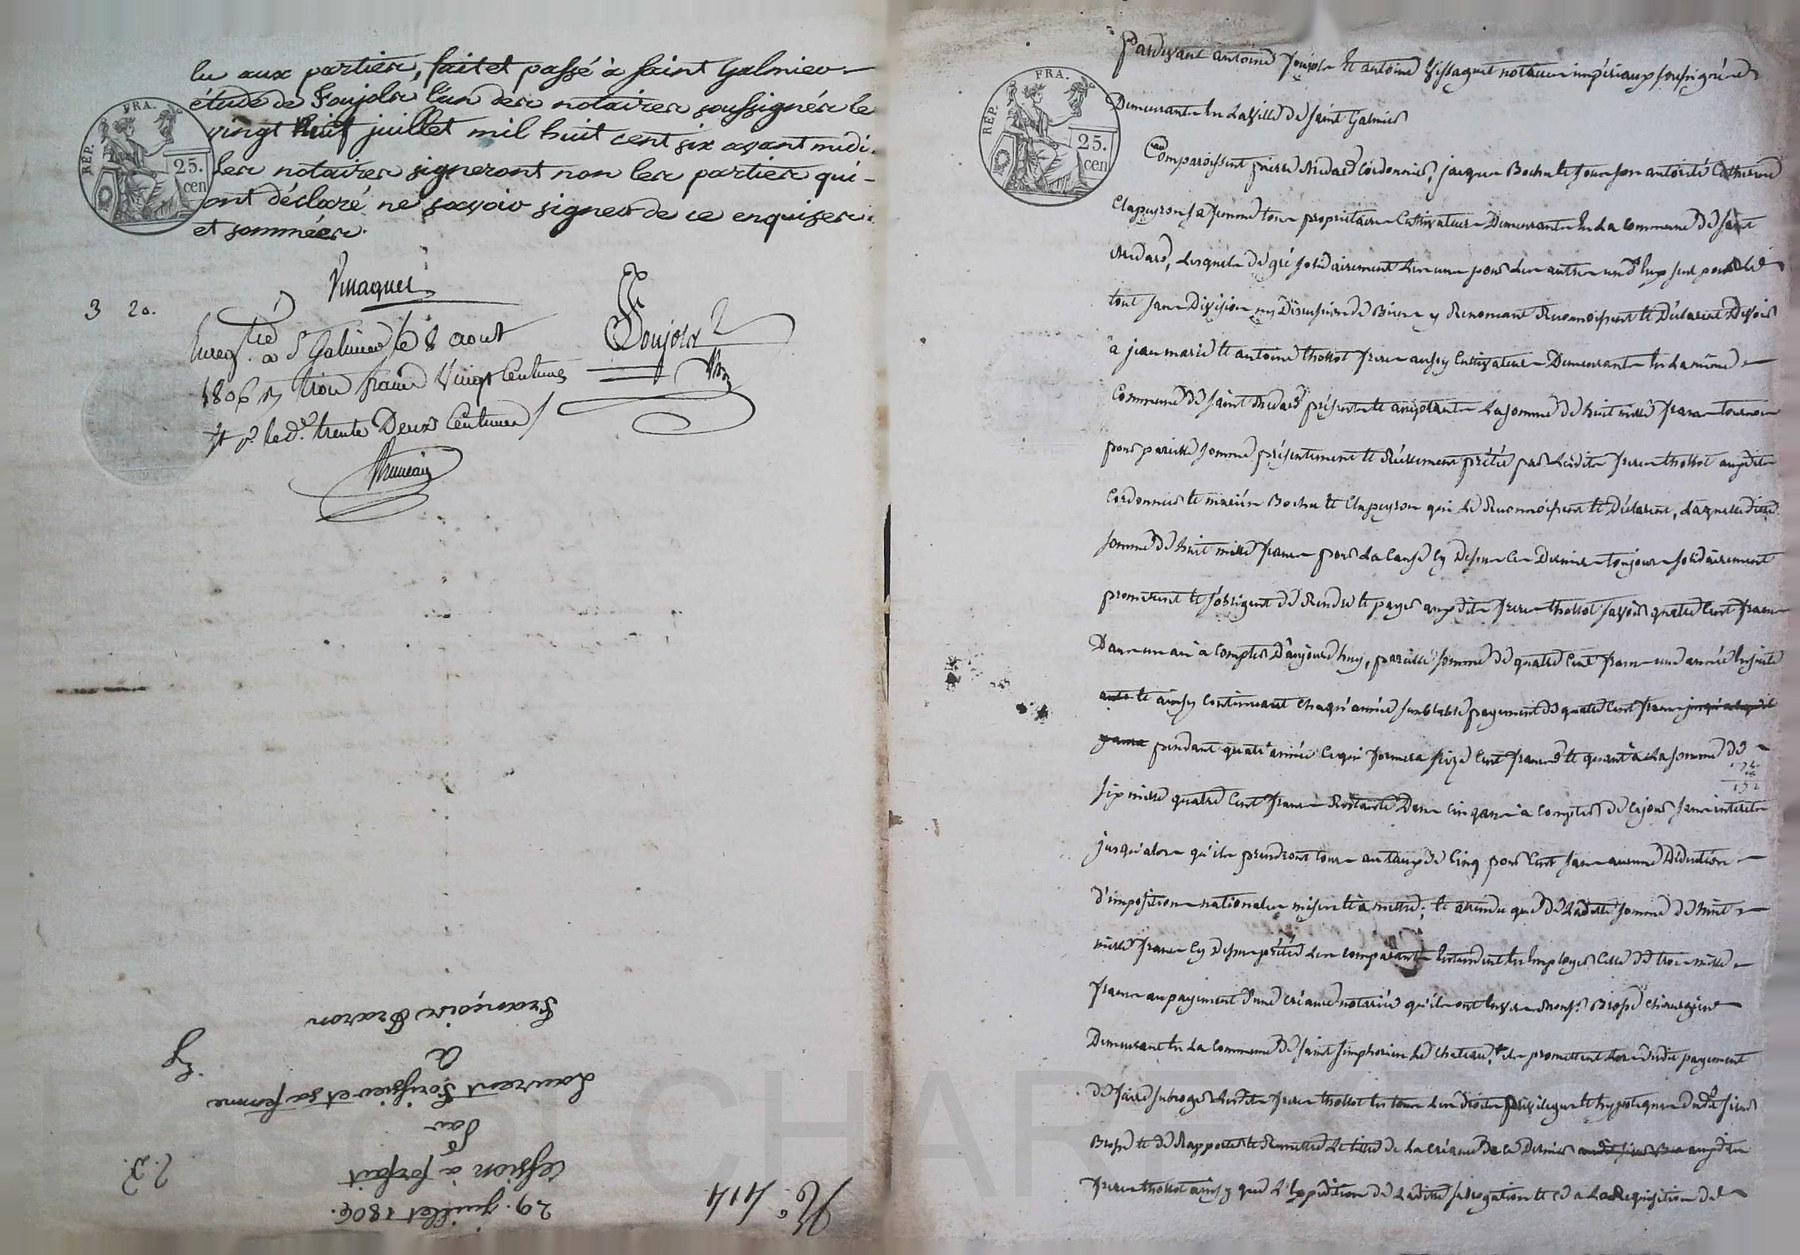 lu aux parties, fait et passé à Saint Galmier
étude de Poujols l'un des notaires soussignés le
vingt huit juillet mil huit cent six avant midi.
les notaires signeront non les parties qui
ont déclaré ne savoir signer de ce enquises
et sommées.
REP. FRA.
25. cen
3 20.
Enreg.tré a St Galmier le 8 aout
1806 trois francs vingt Centimes
trente Deux Centimes
N.o 414
29. juillet 1806.
Cession à forfait
Par
Laurent et sa femme
a
François
REP. FRA.
25. cen
Pardevant antoine et antoine notaires impériaux soussignés
Demeurants En La Ville de Saint Galmier
Comparoissent pierre Medard Cordonnier, jacques et sous son autorité Catherine
Clapeyron sa femme tous proprietaires Cultivateurs Demeurants En La Commune de Saint
Medard, Lesquels de gré solidairement Les uns pour Les autres un d'eux seul pour Le
tout sans Division ny Discussion de Biens y Renoncant Reconnoissent et Déclarent Devoir
à jean marie et antoine thollot freres aussy Cultivateurs Demeurants En La même
Commune de Saint Medard présents et acceptants La somme de huit mille francs tournois
pour pareille somme présentement et Réellement prêtée par Lesdits freres thollot auxdits
Cordonnier et mariés et Clapeyron qui Le Reconnoissent et Déclarent, Laquelle dite
somme de huit mille francs pour La Cause Cy Dessus Les Derniers toujours solidairement
promettent et s'obligent de Rendre et payer auxdits freres thollot savoir quatre Cent francs
Dans un an à Compter D'aujourd'huy, pareille somme de quatre Cent francs une année Ensuite
et ainsy Continuant Chaqu'année semblable payement de quatre Cent francs
pendant quatre années Ce qui formera seize Cent francs et quant à La somme de
six mille quatre Cent francs Restante Dans Cinq ans à Compter de Ce jour sans interets
jusqu'alors qu'ils prendront Cours au taux de Cinq pour Cent sans aucune Déduction
D'impositions nationales mises et à mettre; et attendu que de Ladite somme de huit
mille francs Cy Dessus prêtée Les Comparants Entendent En Employer Celle de trois mille
francs au payement D'une Créance notariée qu'ils ont Envers Chirurgien
Demeurant En La Commune de Saint Simphorien Le Chateau, ils promettent Lors dudit payement
de faire subroger Lesdits freres thollot En tous Les Droits privileges et hypoteques dudit sieur
et de Rapporter et Remettre Le titre de La Créance de ce Dernier auxdits
freres thollot ainsy que L'Expédition de Ladite subrogation et ce a La Requisition de